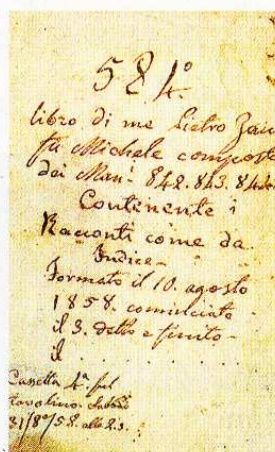 584.º
libro di me Pietro Zai
fu Michele composto
dei Man.i 842.843.844
Continente i
Racconti come da
Indice -
Formato il 10. agosto
1858. cominciato
il 3. detto e finito -
il . . . . . .
Cassetta 4.ª sul
tavolino. Sabbato
31/8º/58. alle 23.